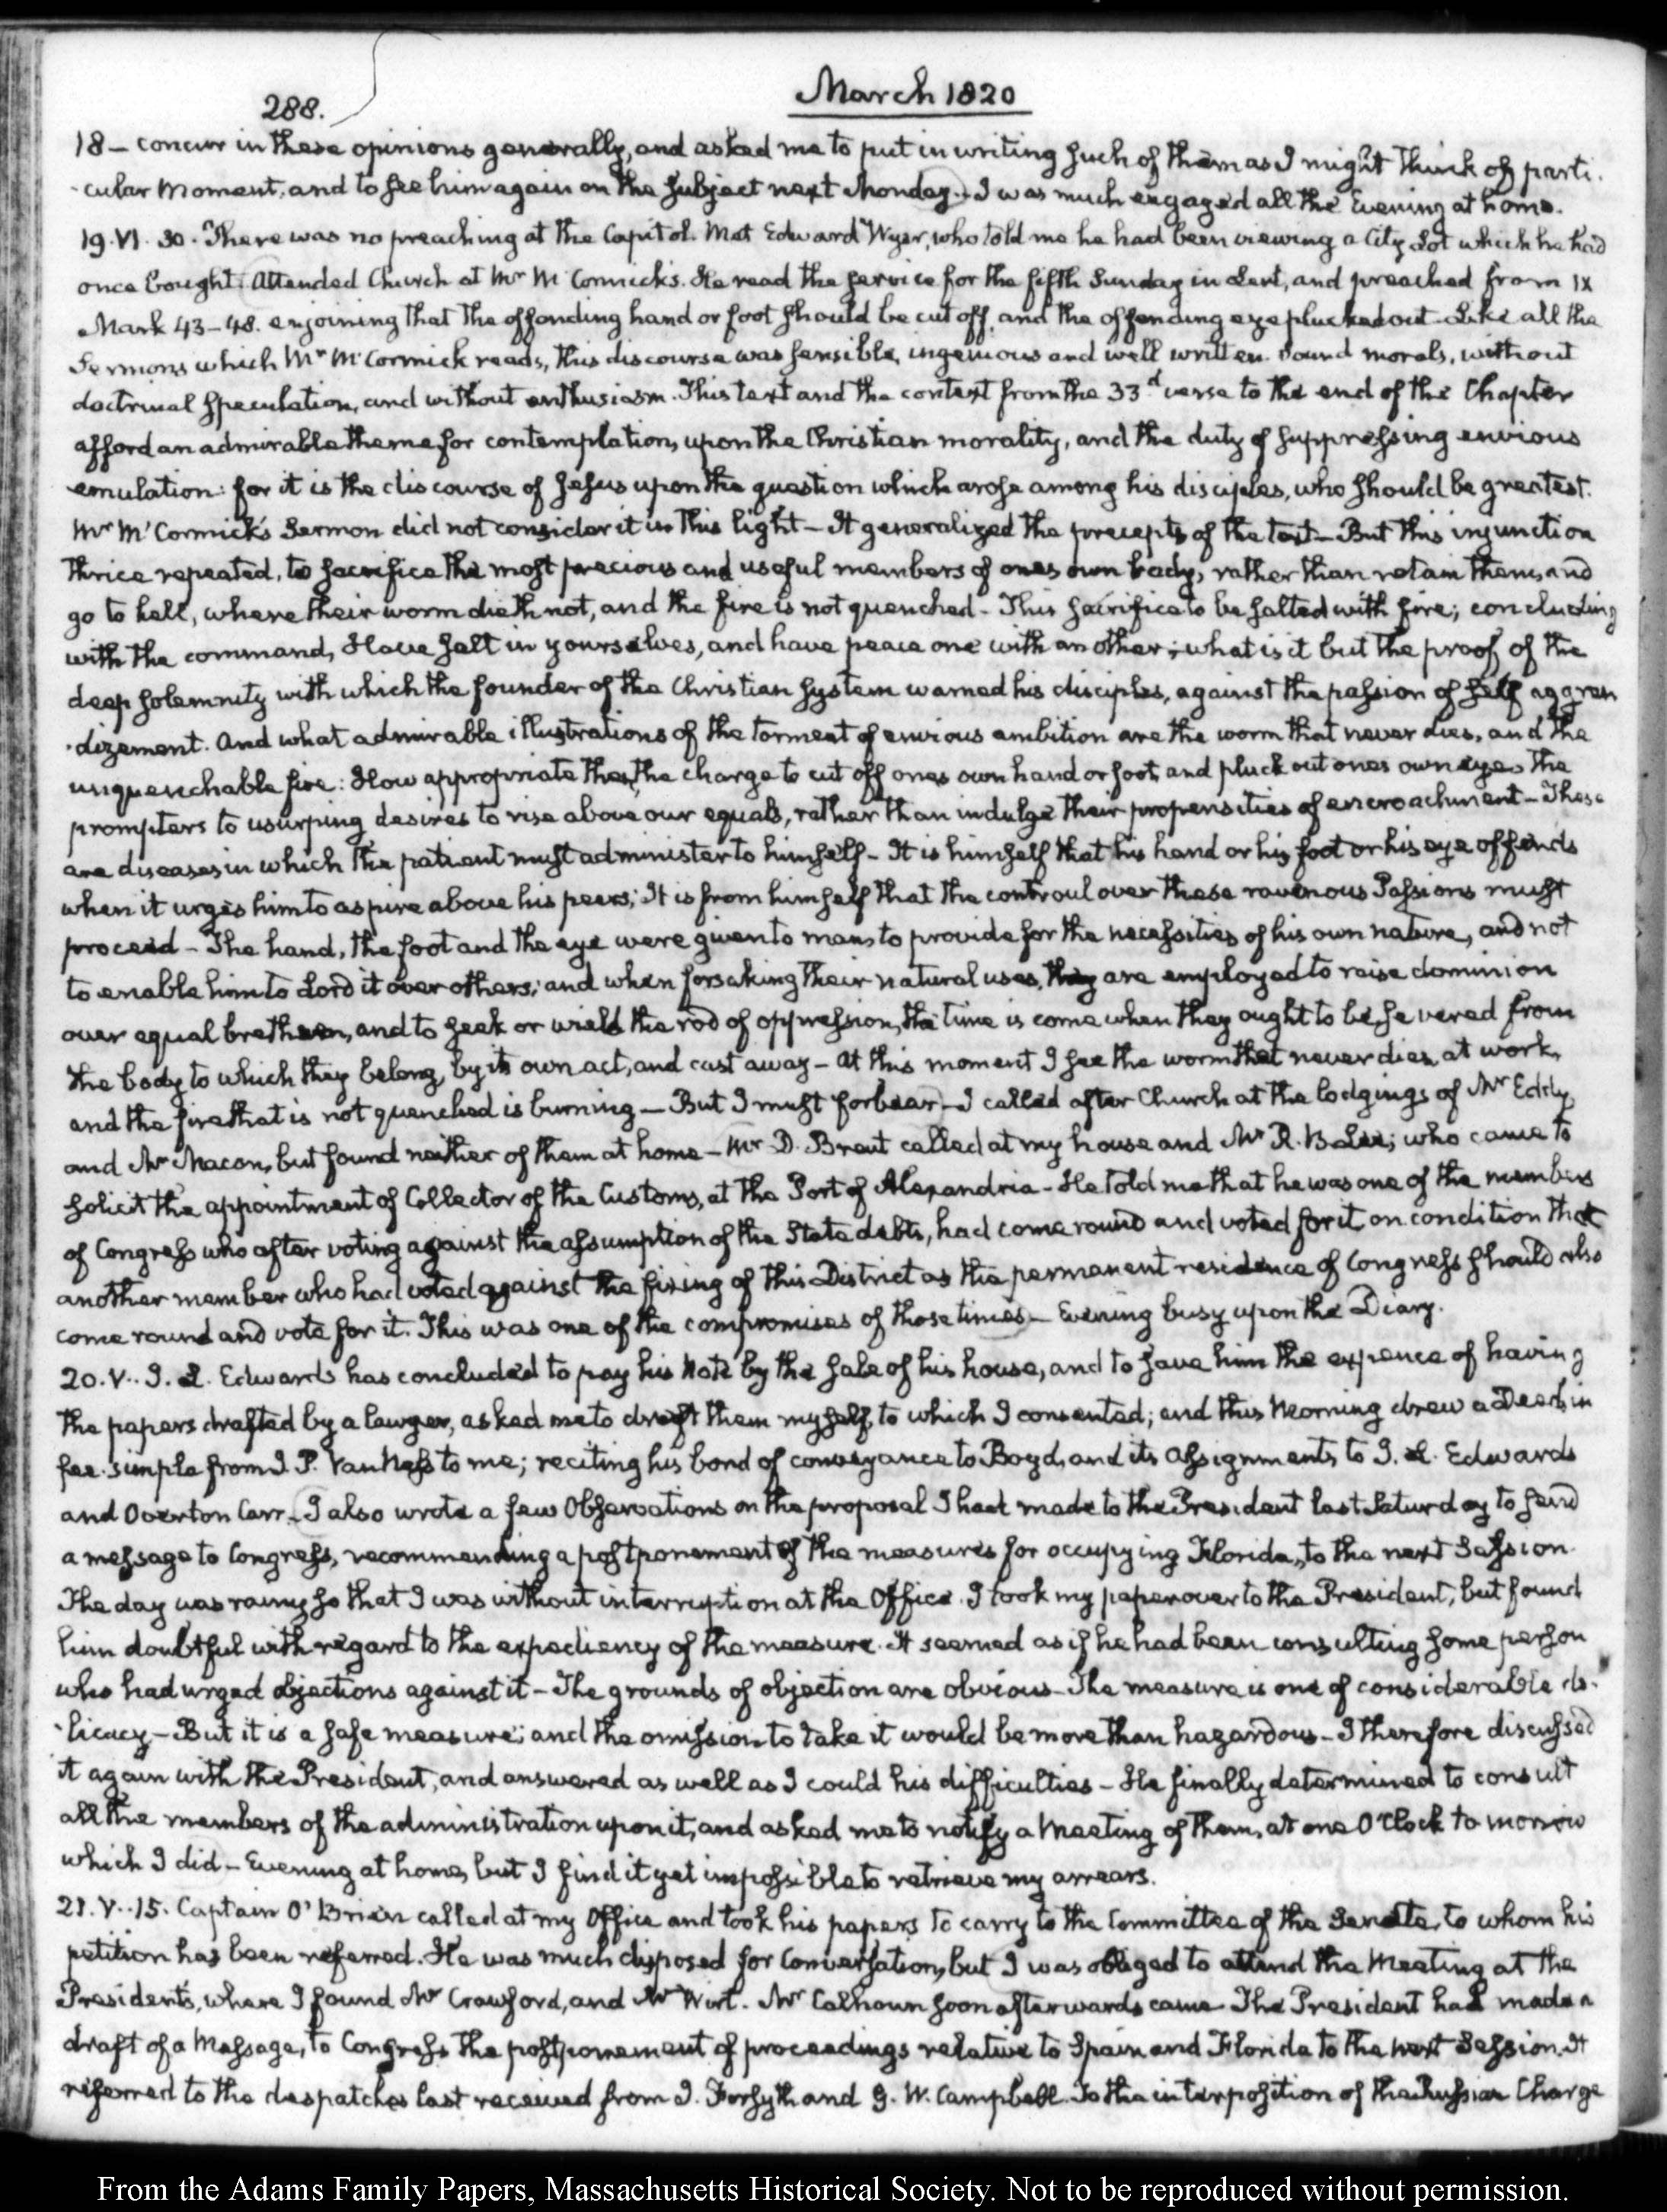 288.
March 1820
18 – concur in these opinions generally, and asked me to put in writing such of them as I might think of parti-
-cular moment, and to see him again on the subject next Monday – I was much engaged all the Evening at home.
19. VI. 30. There was no preaching at the Capitol. Met Edward Wyer, who told me he had been viewing a City Lot which he had
once bought. Attended Church at Mr McCormick's. He read the service for the fifth Sunday in Lent, and preached from IX
Mark 43–48. enjoining that the offending hand or foot should be cut off, and the offending eye plucked out. Like all the
Sermons which Mr McCormick reads, this discourse was sensible, ingenious and well written. Sound morals, without
doctrinal speculation, and without enthusiasm. This text and the context from the 33d verse to the end of the Chapter
afford an admirable theme for contemplation, upon the Christian morality, and the duty of suppressing envious
emulation: for it is the discourse of Jesus upon the question which arose among his disciples, who should be greatest.
Mr McCormick's Sermon did not consider it in this light – It generalized the precepts of the text – But this injunction
thrice repeated, to sacrifice the most precious and useful members of ones own body, rather than retain them, and
go to hell, where their worm dieth not, and the fire is not quenched – This sacrifice to be salted with fire; concluding
with the command, Have salt in yourselves, and have peace one with another; what is it but the proof of the
deep solemnity with which the founder of the Christian system warned his disciples, against the passion of self aggran
-dizement. And what admirable illustrations of the torment of envious ambition are the worm that never dies, and the
unquenchable fire: How appropriate then, the charge to cut off ones own hand or foot and pluck out ones own eye, the
prompters to usurping desires to rise above our equals, rather than indulge their propensities of encroachment – These
are diseases in which the patient must administer to himself – It is himself that his hand or his foot or his eye offends
when it urges him to aspire above his peers; It is from himself that the controul over these ravenous Passions must
proceed – The hand, the foot and the eye were given to man, to provide for the necessities of his own nature, and not
to enable him to Lord it over others; and when forsaking their natural uses, they are employed to raise dominion
over equal brethren, and to seek or wield the rod of oppression, the time is come when they ought to be severed from
the body to which they belong, by its own act, and cast away – At this moment I see the worm that never dies, at work,
and the fire that is not quenched is burning – But I must forbear – I called after Church at the lodgings of Mr Eddy,
and Mr Macon, but found neither of them at home – Mr D. Brent called at my house and Mr R. B. Lee; who came to
solicit the appointment of Collector of the Customs, at the Port of Alexandria – He told me that he was one of the members
of Congress who after voting against the assumption of the State debts, had come round and voted for it on condition that
another member who had voted against the fixing of this District as the permanent residence of Congress should also
come round and vote for it. This was one of the compromises of those times – Evening busy upon the Diary.
20. V.. J. L. Edwards has concluded to pay his Note by the sale of his house, and to save him the expence of having
the papers drafted by a lawyer, asked me to draft them myself, to which I consented; and this Morning drew a Deed, in
fee simple from J. P. Van Ness to me; reciting his bond of conveyance to Boyd, and its assignments, to J. L. Edwards
and Overton Carr – I also wrote a few Observations on the proposal I had made to the President last Saturday to send
a message to Congress, recommending a postponement of the measures for occupying Florida, to the next Session.
The day was rainy so that I was without interruption at the Office. I took my paper over to the President, but found
him doubtful with regard to the expediency of the measure. It seemed as if he had been consulting some person
who had urged objections against it – The grounds of objection are obvious – The measure is one of considerable de-
-licacy – But it is a safe measure; and the omission to take it would be more than hazardous – I therefore discussed
it again with the President, and answered as well as I could his difficulties – He finally determined to consult
all the members of the administration upon it, and asked me to notify a Meeting of them, at one O'Clock to morrow
which I did – Evening at home, but I find it yet impossible to retrieve my arrears.
21. V.. 15. Captain O'Brien called at my Office and took his papers to carry to the Committee of the Senate, to whom his
petition has been referred. He was much disposed for Conversation, but I was obliged to attend the Meeting at the
President's, where I found Mr Crawford, and Mr Wirt. Mr Calhoun soon afterwards came. The President had made a
draft of a Message, to Congress the postponement of proceedings relative to Spain and Florida to the next Session. It
referred to the despatches last received from J. Forsyth and G. W. Campbell. To the interposition of the Russian Charge
From the Adams Family Papers, Massachusetts Historical Society. Not to be reproduced without permission.